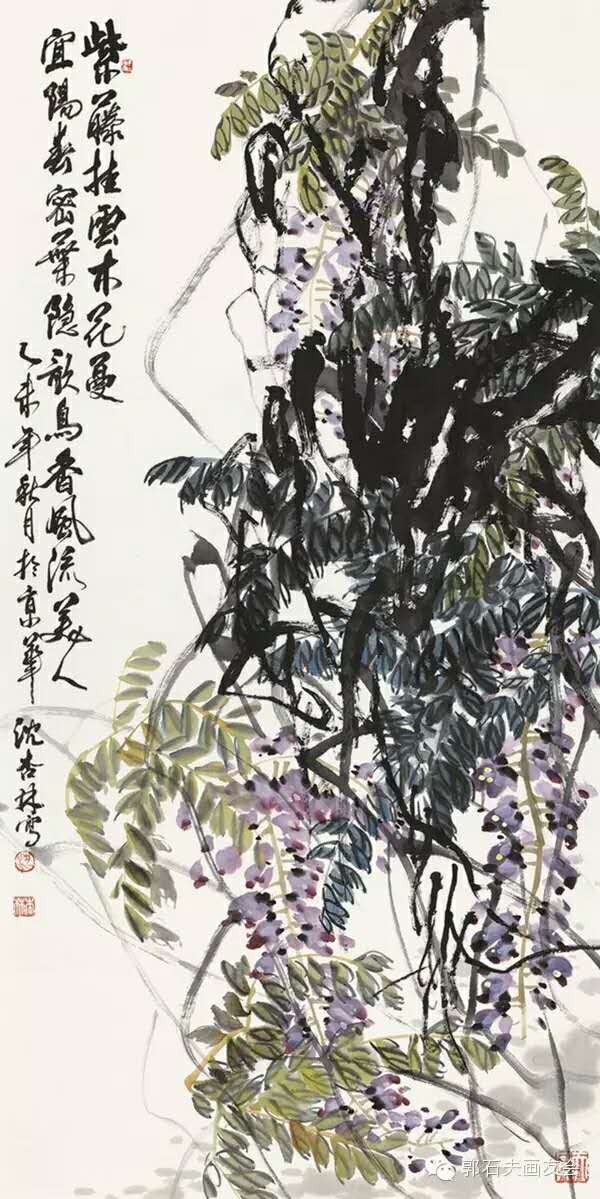 紫藤挂云木花蔓
宜阳春密叶隐歌鸟香风流美人
乙未年秋月于京华 沈杏林写
郭石夫画友会